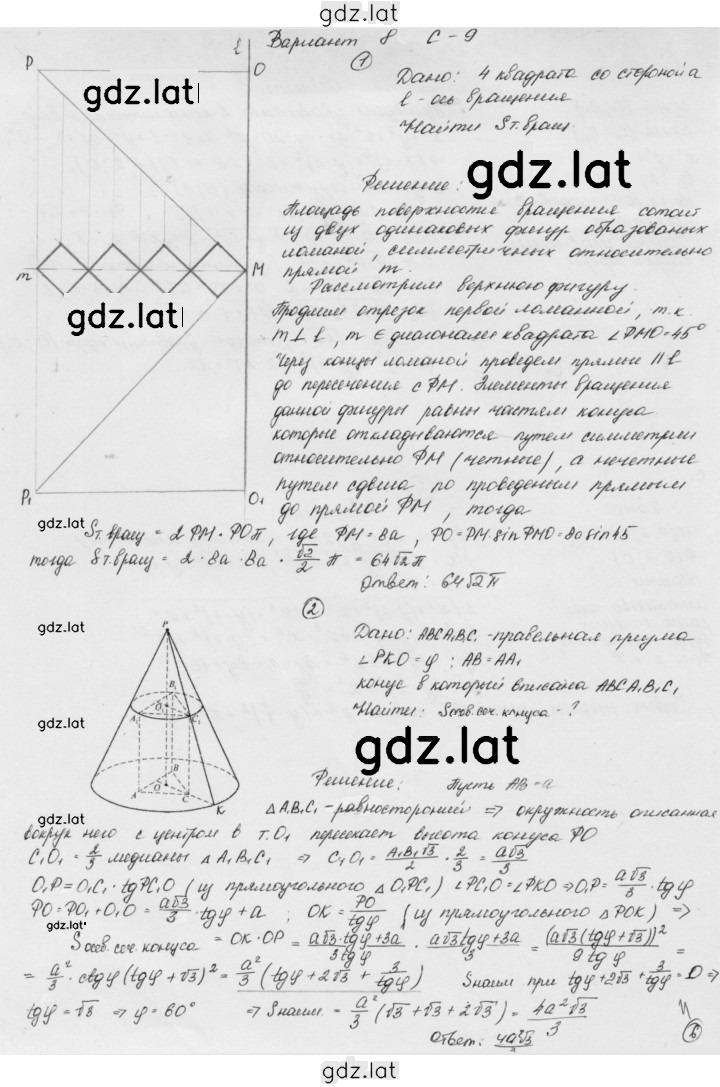 gdz.lat
Вариант 8 С-9
①
P l O
gdz.lat
Дано: 4 квадрата со стороной a
l - ось вращения
Найти Sт.вращ
Решение:
gdz.lat
Площадь поверхности вращения состоит
из двух одинаковых фигур образованых
ломаной, симметричных относительно
прямой m.
m M
Рассмотрим верхнюю фигуру.
gdz.lat
Продлим отрезок первой ломанной, т.к.
m⊥l, m ∈ диагонали квадрата ∠PMO=45°
Через концы ломаной проведем прямые || l
до пересечения с PM. Элементы вращения
данной фигуры равны частям конуса
которые откладываются путем симметрии
относительно PM (четные), а нечетные
путем сдвига по проведеным прямым
до прямой PM, тогда
P₁ O₁
gdz.lat
Sт.вращ = 2 PM · POπ, где PM=8a, PO=PM sin PMO=8a sin 45
тогда Sт.вращ = 2 · 8a · 8a · √2/2 π = 64√2π
Ответ: 64√2π
②
gdz.lat
P
Дано: ABCA₁B₁C₁ - правельная призма
∠PKO=φ ; AB=AA₁
конус в который вписана ABCA₁B₁C₁
Найти: Sосев.сеч. конуса - ?
B₁
O₁
A₁ C₁
gdz.lat
gdz.lat
B
A O C
K
Решение: Пусть AB=a
△A₁B₁C₁ - равносторонний ⇒ окружность описанная
gdz.lat
вокруг него с центром в т.O₁ пересекает высота конуса PO
C₁O₁ = 2/3 медианы △A₁B₁C₁ ⇒ C₁O₁ = A₁B₁√3/2 · 2/3 = a√3/3
O₁P=O₁C₁ · tgPC₁O (из прямоугольного △O₁PC₁) ∠PC₁O=∠PKO ⇒ O₁P= a√3/3 · tgφ
PO=PO₁+O₁O = a√3/3 · tgφ + a ; OK = PO/tgφ (из прямоугольного △POK) ⇒
gdz.lat
Sосев.сеч.конуса = OK·OP = a√3·tgφ+3a/3tgφ · a√3tgφ+3a/3 = (a√3(tgφ+√3))²/9tgφ =
= a²/3 · ctgφ(tgφ+√3)² = a²/3 (tgφ + 2√3 + 3/tgφ) Sнаим. при tgφ+2√3+3/tgφ=0 ⇒
tgφ=√3 ⇒ φ=60° ⇒ Sнаим. = a²/3 (√3+√3+2√3) = 4a²√3/3
Ответ: 4a²√3
gdz.lat